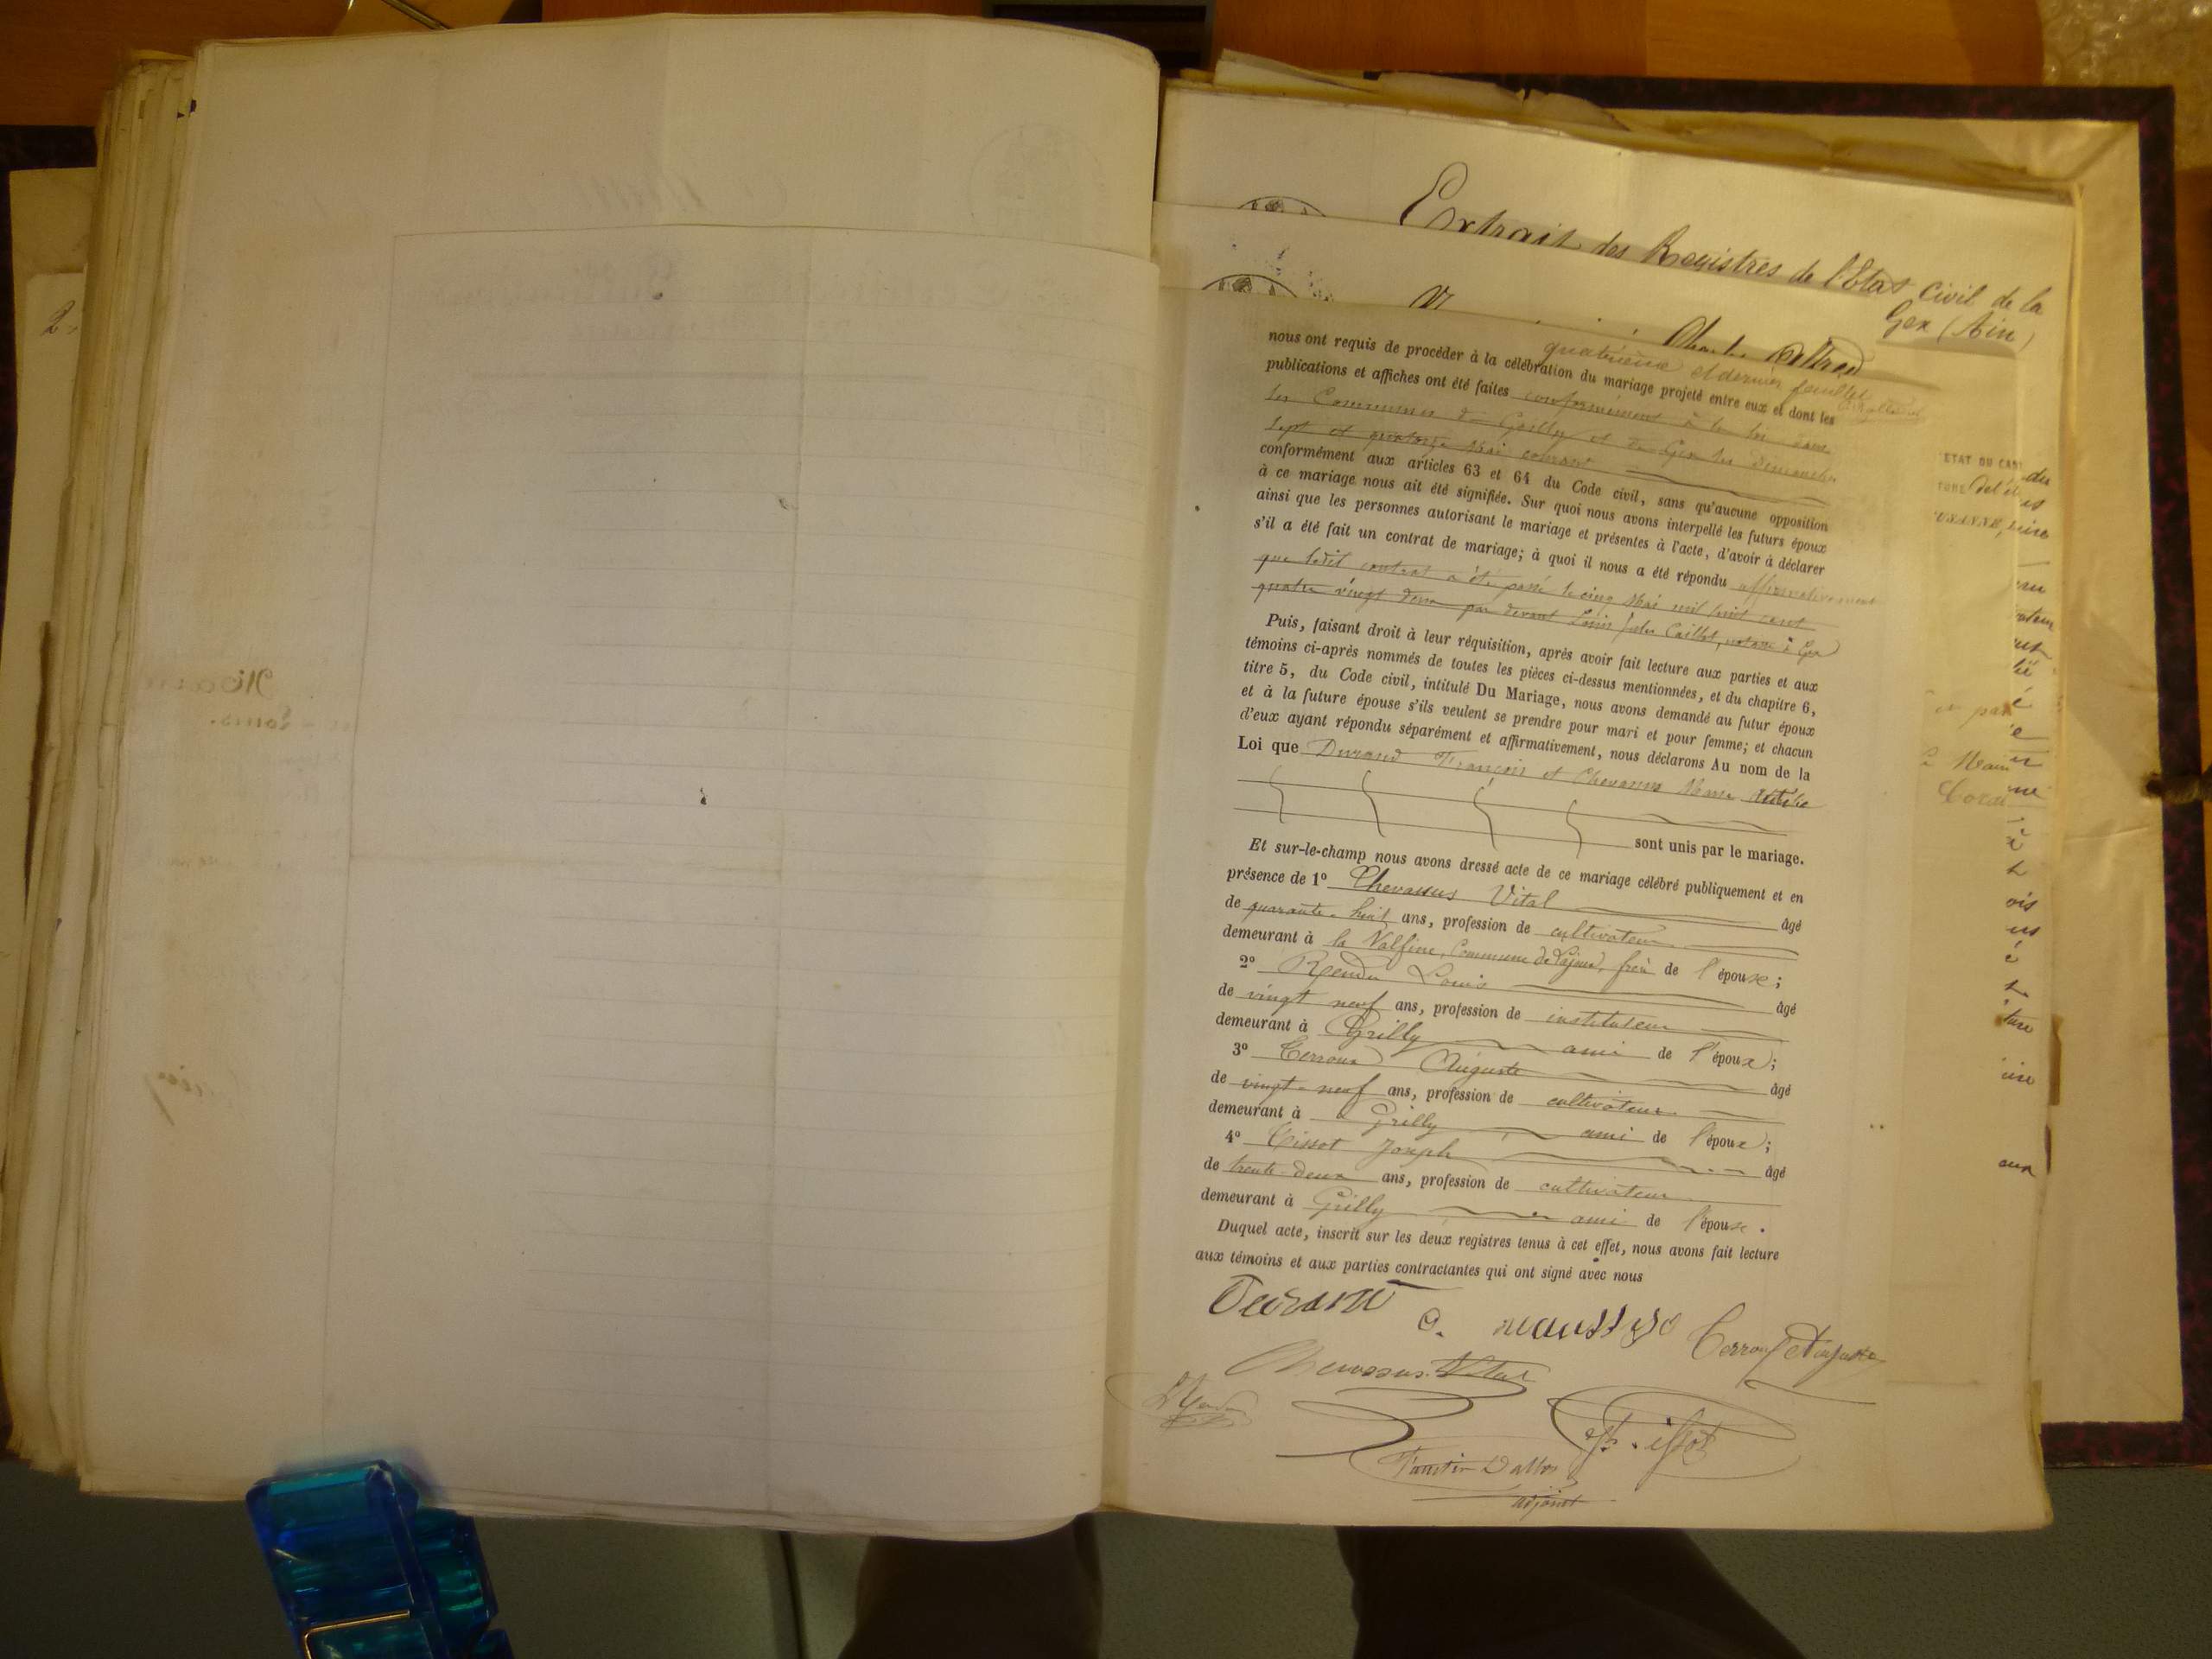 Extrait des Registres de l'Etat civil de la
Gex (Ain)
quatrième et dernier feuillet
nous ont requis de procéder à la célébration du mariage projeté entre eux et dont les
publications et affiches ont été faites conformément à la loi dans
les Communes de Grilly et de Gex les dimanches
sept et quatorze Mai courant
conformément aux articles 63 et 64 du Code civil, sans qu'aucune opposition
à ce mariage nous ait été signifiée. Sur quoi nous avons interpellé les futurs époux
ainsi que les personnes autorisant le mariage et présentes à l'acte, d'avoir à déclarer
s'il a été fait un contrat de mariage; à quoi il nous a été répondu affirmativement
que ledit contrat a été passé le cinq Mai mil huit cent
quatre vingt deux par devant Louis Jules Caillat, notaire à Gex
Puis, faisant droit à leur réquisition, après avoir fait lecture aux parties et aux
témoins ci-après nommés de toutes les pièces ci-dessus mentionnées, et du chapitre 6,
titre 5, du Code civil, intitulé Du Mariage, nous avons demandé au futur époux
et à la future épouse s'ils veulent se prendre pour mari et pour femme; et chacun
d'eux ayant répondu séparément et affirmativement, nous déclarons Au nom de la
Loi que Durand François et Chevassus Marie
sont unis par le mariage.
Et sur-le-champ nous avons dressé acte de ce mariage célébré publiquement et en
présence de 1° Chevassus Vital âgé
de quarante-huit ans, profession de cultivateur
demeurant à la Valfine, Commune de Lajoux, frère de l'épouse;
2° Rendu Louis âgé
de vingt neuf ans, profession de instituteur
demeurant à Grilly ami de l'époux;
3° Terroux Auguste âgé
de vingt-neuf ans, profession de cultivateur
demeurant à Grilly ami de l'époux;
4° Tissot Joseph âgé
de trente-deux ans, profession de cultivateur
demeurant à Grilly ami de l'épouse.
Duquel acte, inscrit sur les deux registres tenus à cet effet, nous avons fait lecture
aux témoins et aux parties contractantes qui ont signé avec nous
Durand
Terroux Auguste
Chevassus Vital
L Rendu
Tissot
adjoint